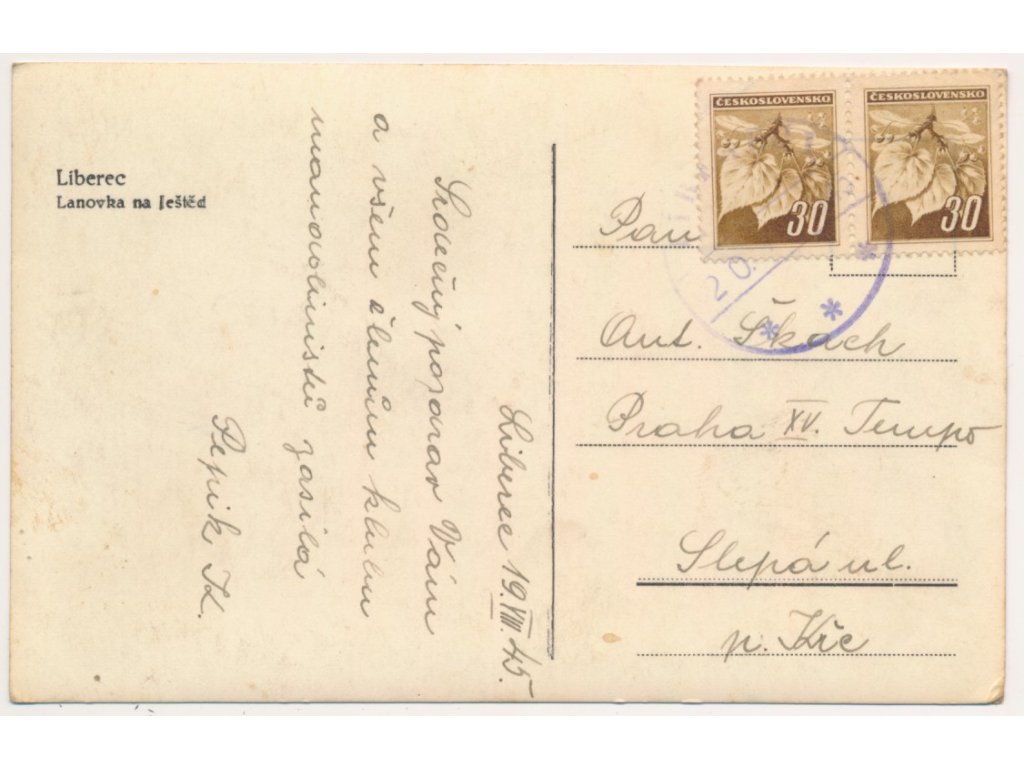 Liberec
Lanovka na Ještěd
Liberec 19.VIII.45.
Srdečný pozdrav Vám
a všem členům klubu
mandolinistů zasílá
Pepik K.
ČESKOSLOVENSKO
30
ČESKOSLOVENSKO
30
20.
Pan
Ant. Škach
Praha XV. Tempo
Slepá ul.
p. Krč